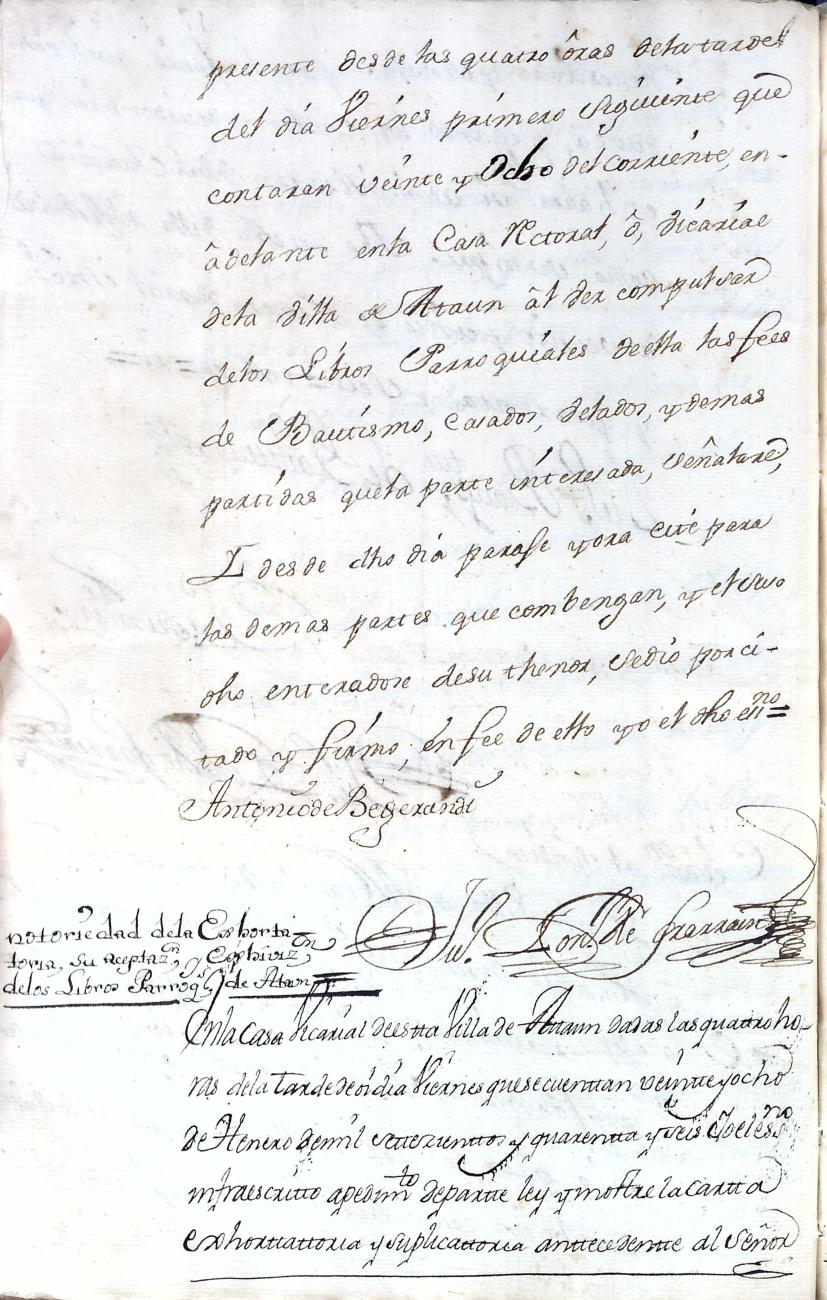 presente desde las quatro ôras delatarde
del día Viernes primero Siguiente que
contaran veinte y Ocho del corriente, en-
âdelante enla Casa Rectoral, ô, Vicariae
dela Villa de Ataun âl ver compulsar
delos Libros Parroquiales deella las fees
de Bautismo, Casados, Velados, y demas
partidas quela parte interesada, señalare,
I desde dho día parase yora cite para
las demas partes que combengan, y el suso
dho enteradose desu thenor, sedio porci-
tado y firmo; en fee de ello yo el dho essno=
Antonio de
notoriedad dela Exhorta
toria, su aceptazn, y Exhiviz
delos Libros Parroqs de Ataun=
Enla Casa Vicarial deestta Villa de Attaun dadas las quattro ho-
ras dela tarde deoi dia Viernes quesecuentan veintte yocho
de Henero demil settezienttos y quarentta y seis Yo elessno
infraescritto apedimto departte ley y mostre la cartta
exhorttattoria y suplicattoria anttecedentte al Señor